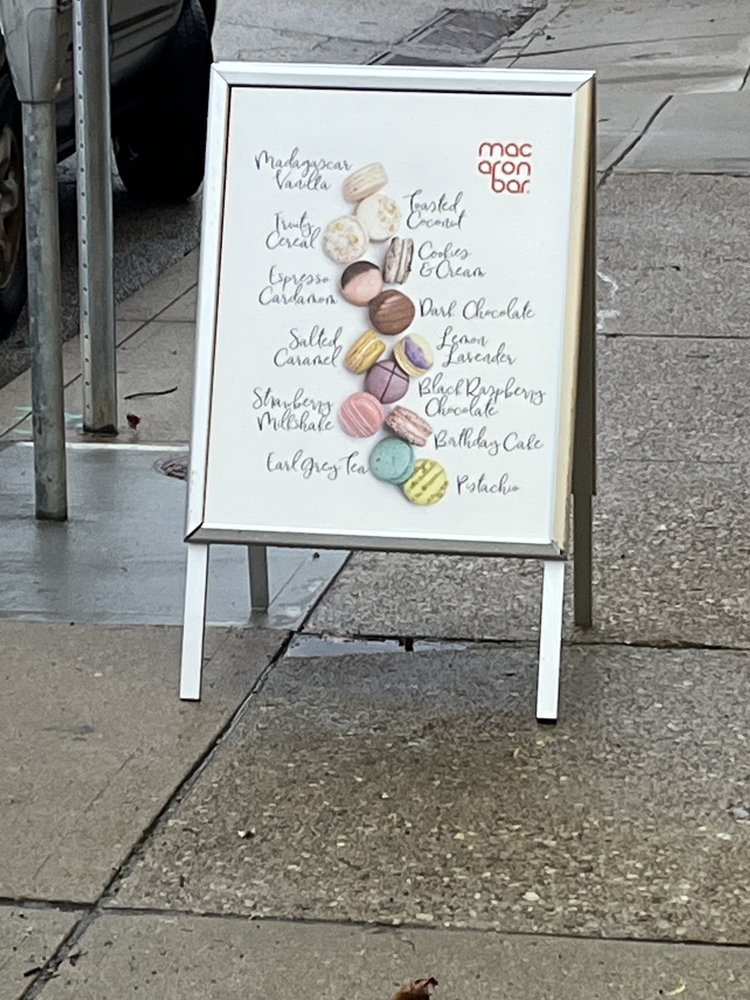 mac
aron
bar
Madagascar
Vanilla
Toasted
Coconut
Fruity
Cereal
Cookies
& Cream
Espresso
Cardamom
Dark Chocolate
Salted
Caramel
Lemon
Lavender
Black Raspberry
Chocolate
Strawberry
Milkshake
Birthday Cake
Earl Grey Tea
Pistachio